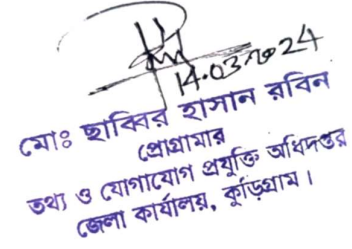 14.03.2024
মোঃ ছাব্বির হাসান রবিন
প্রোগ্রামার
তথ্য ও যোগাযোগ প্রযুক্তি অধিদপ্তর
জেলা কার্যালয়, কুড়িগ্রাম।